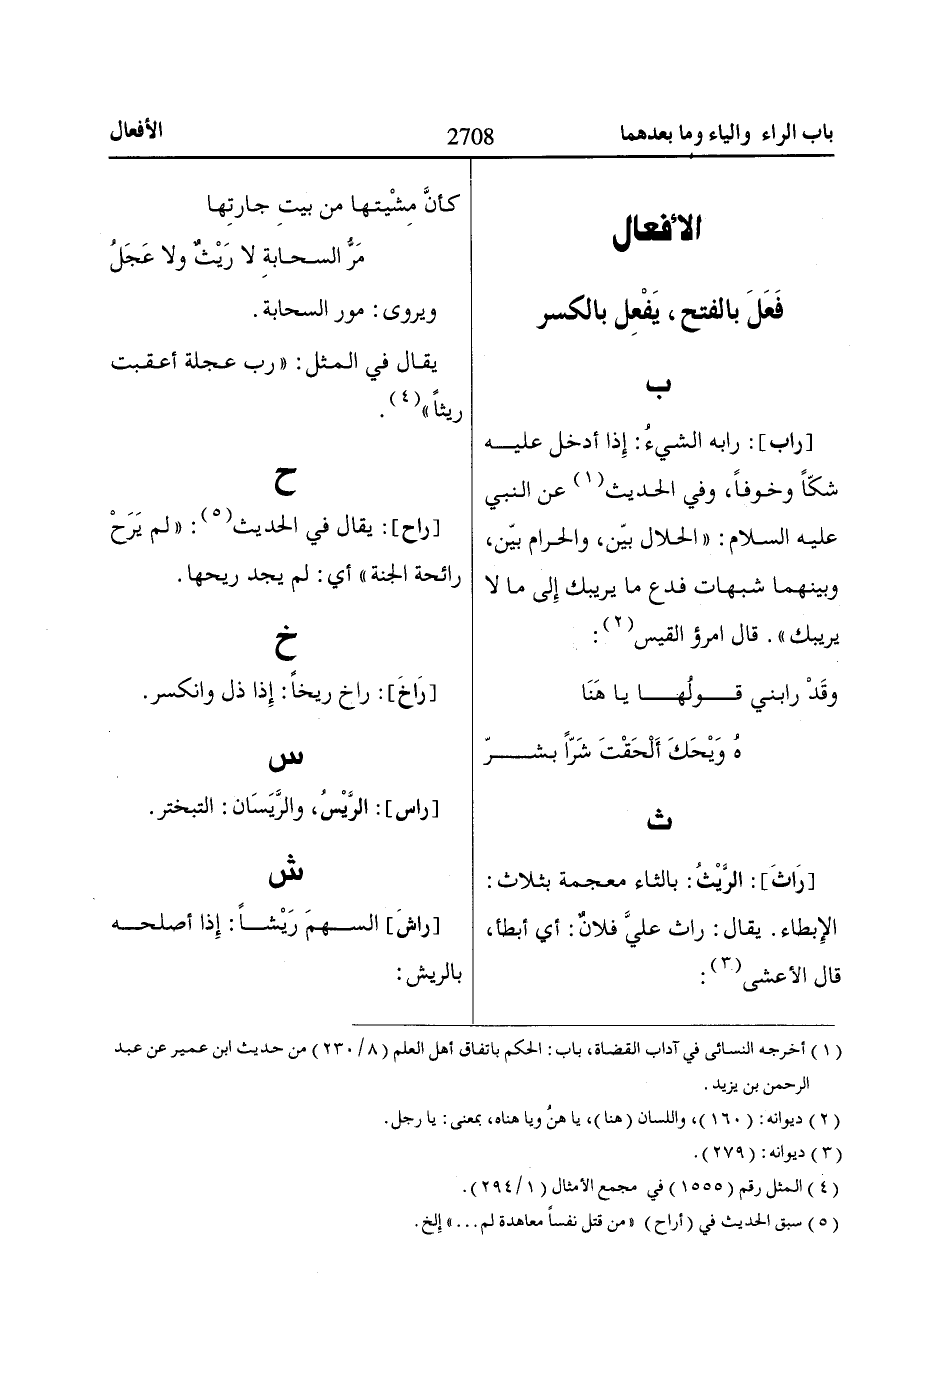 باب الراء والياء وما بعدهما
2708
الأفعال
الأفعال
فَعَلَ بالفتح، يَفْعِل بالكسر
ب
[راب]: رابه الشيءُ: إذا أدخل عليه
شكّاً وخوفاً، وفي الحديث(١) عن النبي
عليه السلام: «الحلال بيّن، والحرام بيّن،
وبينهما شبهات فدع ما يريبك إلى ما لا
يريبك». قال امرؤ القيس(٢):
وقَدْ رابني قولُها يا هَنَا
هُ وَيْحَكَ أَلْحَقْتَ شَرّاً بشرّ
ث
[رَاثَ]: الرَّيْثُ: بالثاء معجمة بثلاث:
الإبطاء. يقال: راث عليَّ فلانٌ: أي أبطأ،
قال الأعشى(٣):
كأنَّ مِشْيتها من بيتِ جارتِها
مَرُّ السحابةِ لا رَيْثٌ ولا عَجَلُ
ويروى: مور السحابة.
يقال في المثل: «رب عجلة أعقبت
ريثاً»(٤).
ح
[راح]: يقال في الحديث(٥): «لم يَرَحْ
رائحة الجنة» أي: لم يجد ريحها.
خ
[رَاخَ]: راخ ريخاً: إذا ذل وانكسر.
س
[راس]: الرَّيْسُ، والرَّيَسَان: التبختر.
ش
[راشَ] السهمَ رَيْشاً: إذا أصلحه
بالريش:
(١) أخرجه النسائي في آداب القضاة، باب: الحكم باتفاق أهل العلم (٨/ ٢٣٠) من حديث ابن عمير عن عبد
الرحمن بن يزيد.
(٢) ديوانه: (١٦٠)، واللسان (هنا)، يا هنُ ويا هناه، بمعنى: يا رجل.
(٣) ديوانه: (٢٧٩).
(٤) المثل رقم (١٥٥٥) في مجمع الأمثال (١/ ٢٩٤).
(٥) سبق الحديث في (أراح) «من قتل نفساً معاهدة لم...» إلخ.